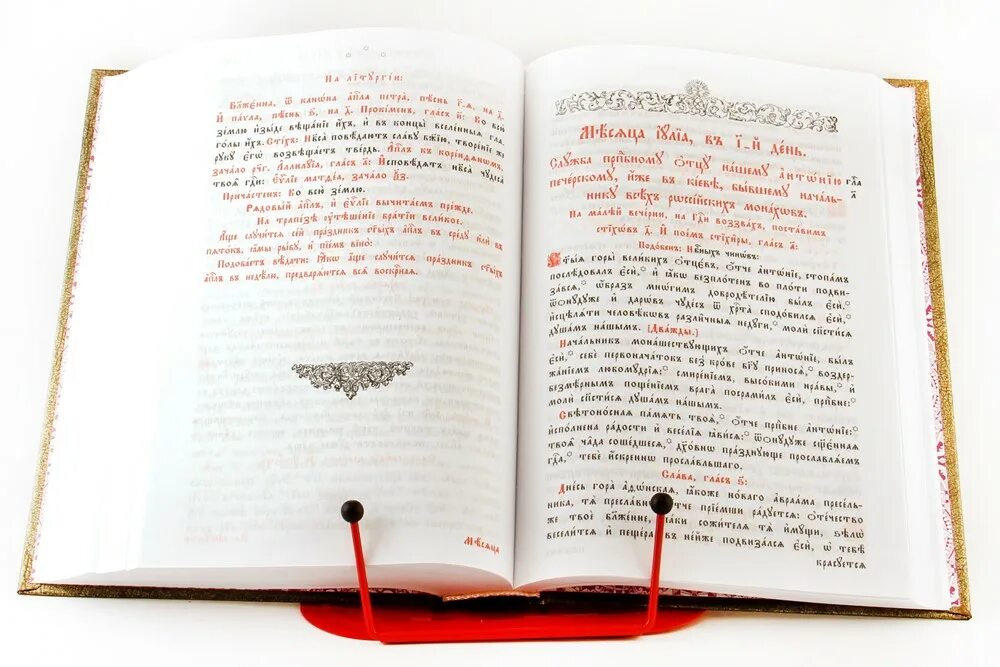 На літꙋргі́и:
Бл҃жє́нна, ѿ канѡ́на а҆п҃ла петра̀, пѣ́снь г҃-ѧ, на д҃.
И҆ па́ѵла, пѣ́снь ѕ҃, на д҃. Прокі́менъ, гла́съ и҃: Во всю̀
зе́млю и҆зы́де вѣща́нїе и҆́хъ, и҆ въ концы̀ вселе́нныѧ гла-
го́лы и҆́хъ. Сті́хъ: Нб҃са̀ повѣ́даютъ сла́вꙋ бж҃їю, творе́нїе же
рꙋкꙋ̀ є҆гѡ̀ возвѣща́етъ тве́рдь. А҆п҃лъ къ корі́нѳѧнѡмъ,
зача́ло рл҃г. А҆ллилꙋ́їа, гла́съ а҃: И҆сповѣ́дѧтъ нб҃са̀ чꙋдеса̀
твоѧ̑ гдⷭ҇и: Є҆ѵⷢ҇лїе матѳе́а, зача́ло
Прича́стенъ: Во всю̀ зе́млю.
Рѧдовы́й а҆п҃лъ, и҆ є҆ѵⷢ҇лїе вычита́емъ пре́жде.
На трапе́зѣ ᲂу҆тѣше́нїе бра́тїи вели́кое.
А҆́ще слꙋчи́тсѧ се́й пра́здникъ ст҃ы́хъ а҆п҃лъ въ сре́дꙋ и҆лѝ въ
пѧто́къ, ꙗ҆́мы ры́бꙋ, и҆ пїе́мъ вїно̀:
Подоба́етъ вѣ́дати: Ꙗ҆́кѡ а҆́ще слꙋчи́тсѧ пра́здникъ ст҃ы́хъ
а҆п҃лъ въ недѣ́лю, предварѧ́ютсѧ всѧ̑ воскрⷭ҇наѧ.
Мⷭ҇ѧца
Мⷭ҇ѧца і҆ꙋ́лїа, въ і҃-й де́нь.
Слꙋ́жба прпⷣбномꙋ ѻ҆тцꙋ̀ на́шемꙋ а҆нтѡ́нїю
пече́рскомꙋ, и҆́же въ кі́евѣ, бы́вшемꙋ нача́ль-
никꙋ всѣ́хъ рѡссі́йскихъ мона́хѡвъ.
На ма́лѣй вече́рни, на гдⷭ҇и воззва́хъ, поста́вимъ
стїхѡ́въ д҃. И҆ пое́мъ стїхи̑ры, гла́съ д҃:
Подо́бенъ: Нбⷭ҇ныхъ чинѡ́въ:
Ст҃ы́ѧ горы̀ вели́кихъ ѻ҆тцє́въ, ѻ҆́тче а҆нтѡ́нїе, стопа́мъ
послѣ́довалъ є҆сѝ, и҆ ꙗ҆́кѡ безпло́тенъ во пло́ти подви-
за́всѧ, ѡ҆́бразъ мнѡ́гимъ добродѣ́телїю бы́лъ є҆сѝ,
ѿѻнꙋ́дꙋже и҆ дарѡ́въ чꙋде́съ ѿ хрⷭ҇та̀ сподо́билсѧ є҆сѝ,
и҆сцѣлѧ́ти человѣ́кѡвъ разли́чныѧ недꙋ́ги, молѝ сп҃сти́сѧ
дꙋша́мъ на́шымъ. [Два́жды.]
Нача́льникъ мона́шествꙋющихъ ѻ҆́тче а҆нтѡ́нїе, бы́лъ
є҆сѝ, себѐ первонача́токъ без̾ кро́ве бг҃ꙋ приносѧ̀, воздер-
жа́нїемъ любомꙋ́дрїѧ, смире́нїемъ, высо́кими нра́вы, и҆
безмѣ́рнымъ поще́нїемъ врага̀ посрами́лъ є҆сѝ, прпⷣбне:
молѝ сп҃сти́сѧ дꙋша́мъ на́шымъ.
Свѣтоно́снаѧ па́мѧть твоѧ̀, ѻ҆́тче прпⷣбне а҆нтѡ́нїе:
и҆спо́лнена ра́дости и҆ весе́лїѧ ꙗ҆ви́сѧ: ѿѻнꙋ́дꙋже сщ҃е́ннаѧ
твоѧ̑ ча̑да соше́дшесѧ, дꙋхо́внѡ пра́зднꙋюще прославлѧ́емъ
гдⷭ҇а, тебѐ и҆́скреннѡ просла́вльшаго.
Сла́ва, гла́съ ѕ҃:
Дне́сь гора̀ а҆ѳѡ́нскаѧ, ꙗ҆́коже но́ваго а҆враа́ма пресе́ль-
ника, тѧ̀ пресла́внѡ ѻ҆́тче прїе́мши ра́дꙋетсѧ: ѻ҆те́чество
же твоѐ бл҃же́нне, па́ки сожи́телѧ тѧ̀ и҆мꙋ́щи, ѕѣлѡ̀
весели́тсѧ и҆ пеще́ра въ не́йже подвиза́лсѧ є҆сѝ, ѡ҆ тебѣ̀
красꙋ́етсѧ